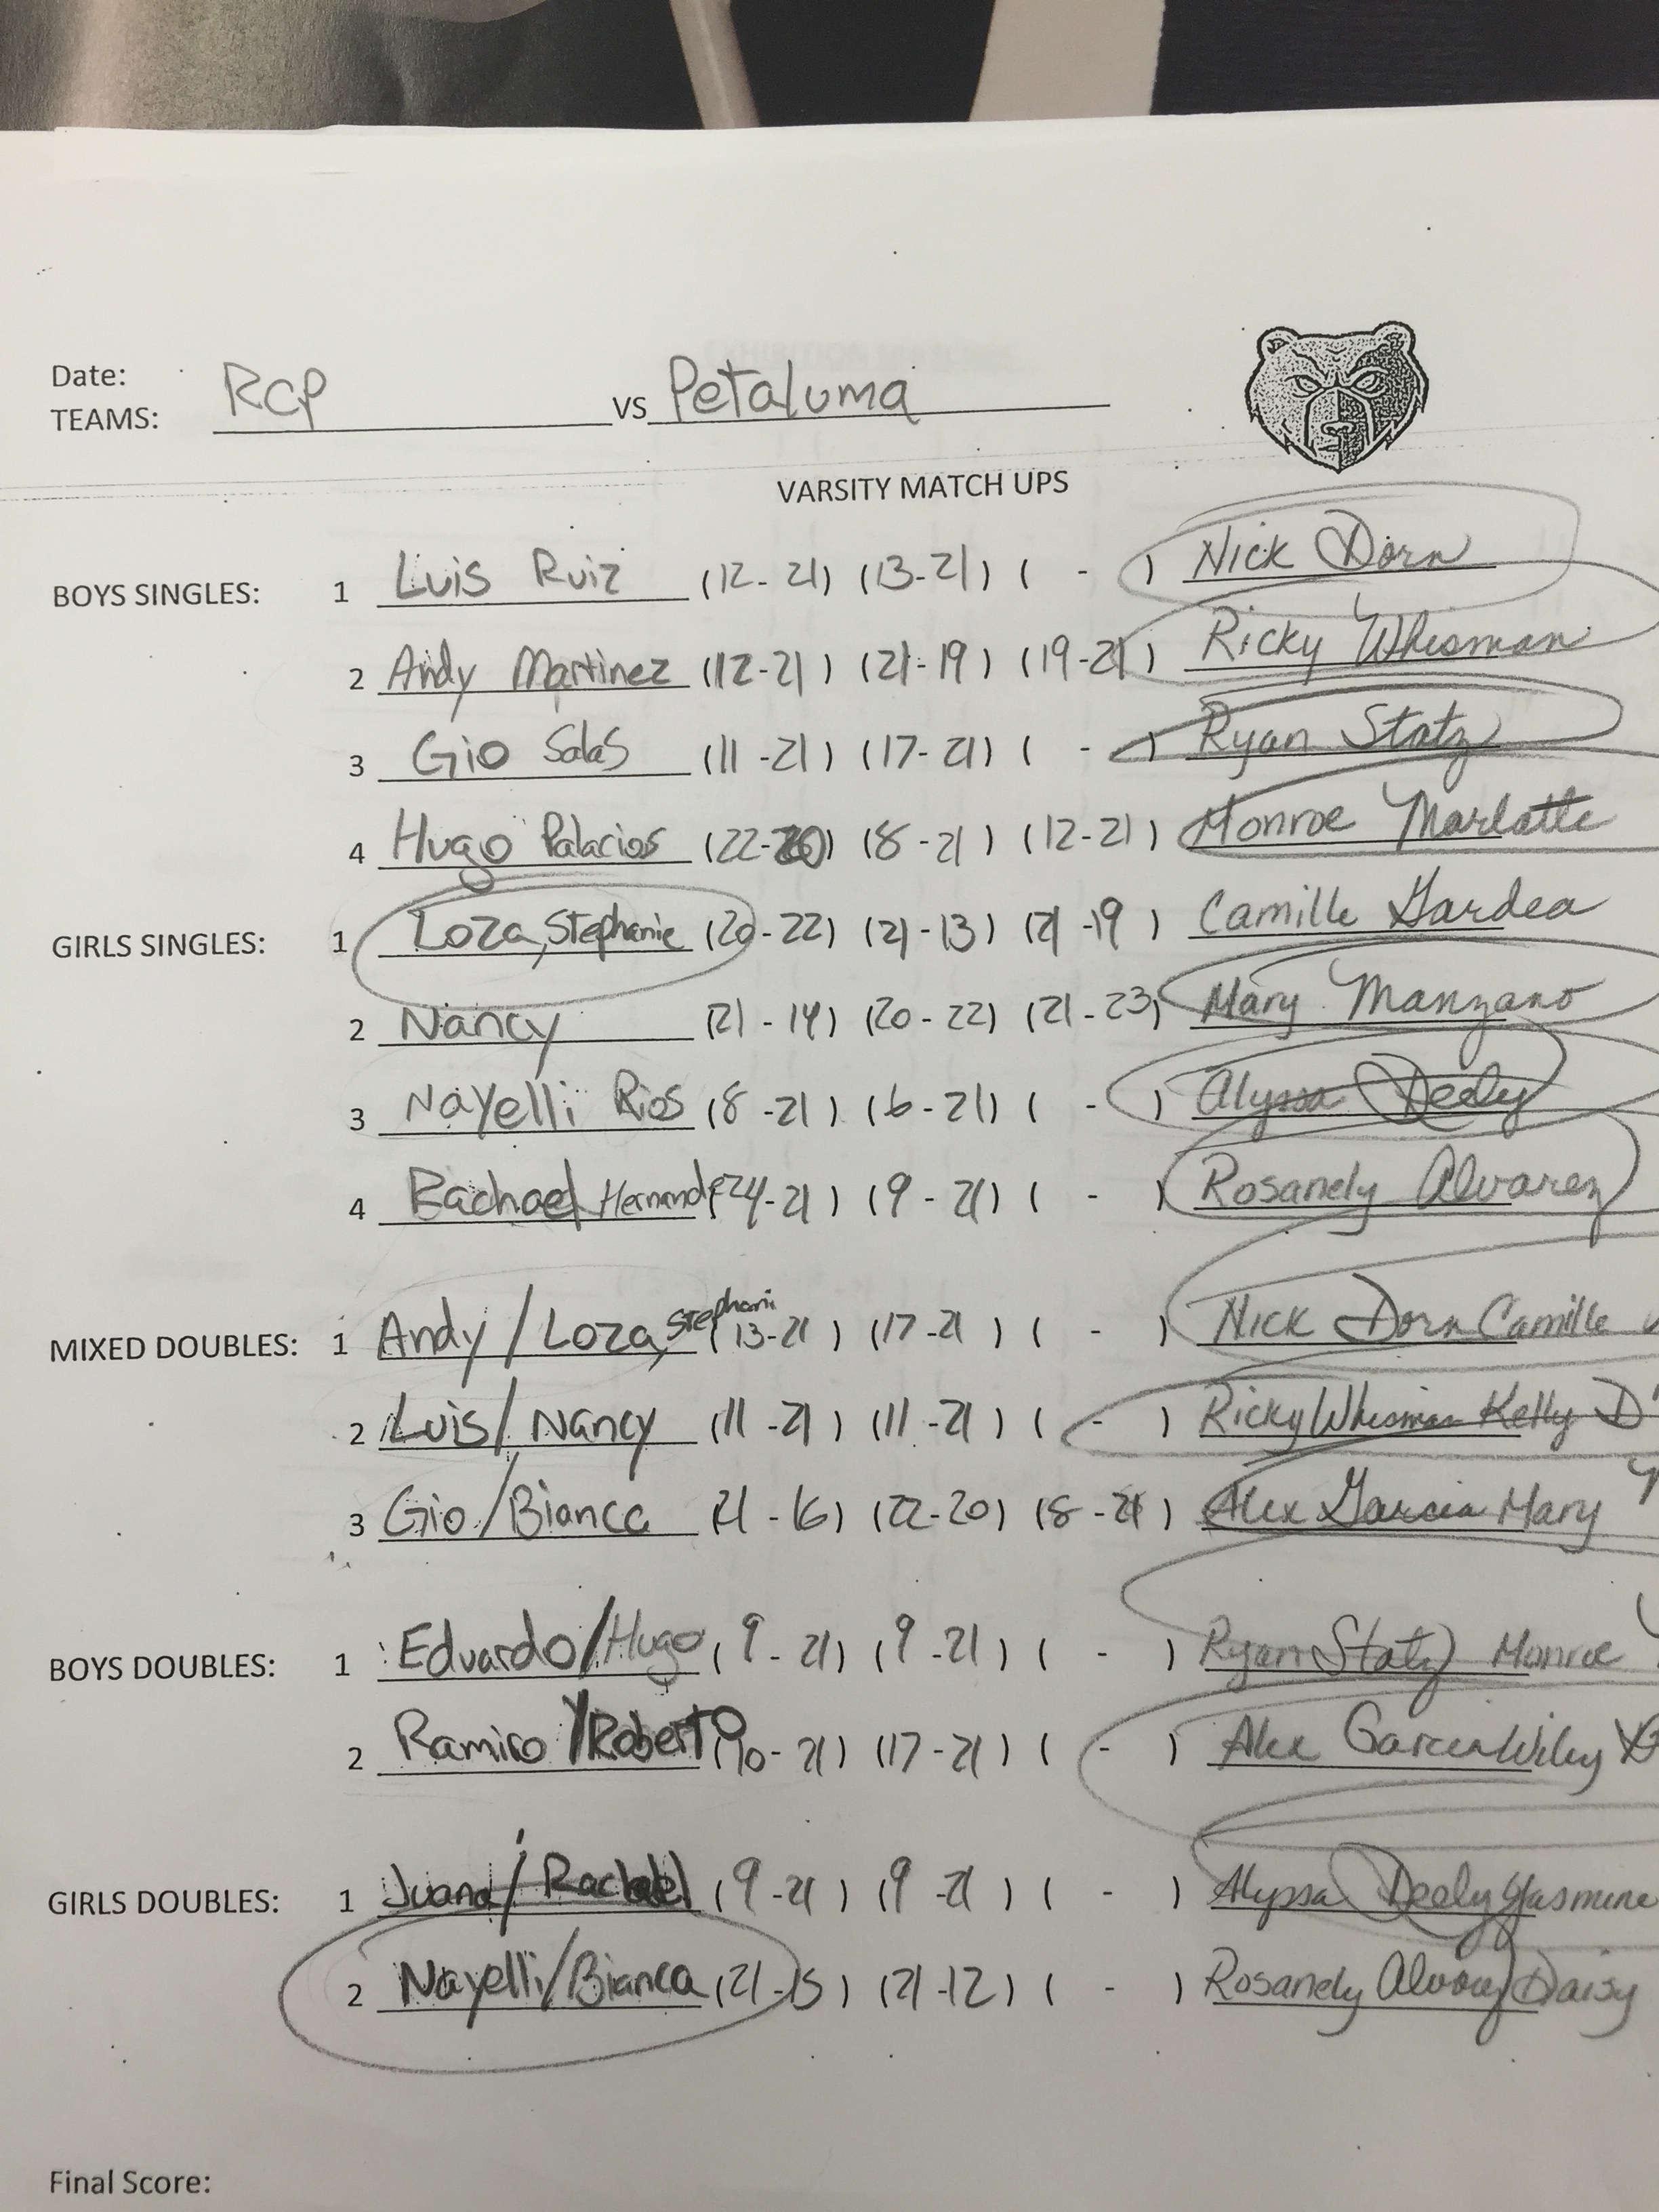 Date:
TEAMS: RCP VS Petaluma
VARSITY MATCH UPS
BOYS SINGLES: 1 Luis Ruiz (12-21) (13-21) ( - ) Nick Dorn
2 Andy Martinez (12-21) (21-19) (19-21) Ricky Whisman
3 Gio Salas (11-21) (17-21) ( - ) Ryan Statz
4 Hugo Palacios (22-20) (8-21) (12-21) Monroe Marlatte
GIRLS SINGLES: 1 Loza, Stephanie (20-22) (21-13) (21-19) Camille Gardea
2 Nancy (21-14) (20-22) (21-23) Mary Manzano
3 Nayelli Rios (8-21) (6-21) ( - ) Alyssa Deely
4 Rachael -21) (9-21) ( - ) Rosanely Alvarez
MIXED DOUBLES: 1 Andy/Loza, Stephani (13-21) (17-21) ( - ) Nick Dorn Camille
2 Luis/Nancy (11-21) (11-21) ( - ) Ricky Whisman Kelly D
3 Gio/Bianca (21-16) (22-20) (8-21) Alex Garcia Mary
BOYS DOUBLES: 1 Eduardo/Hugo (9-21) (9-21) ( - ) Ryan Statz Monroe
2 Ramiro/Roberto (10-21) (17-21) ( - ) Alex Garcia Wiley
GIRLS DOUBLES: 1 Juana/Rachael (9-21) (9-21) ( - ) Alyssa Deely Yasmine
2 Nayelli/Bianca (21-15) (21-12) ( - ) Rosanely Daisy
Final Score: